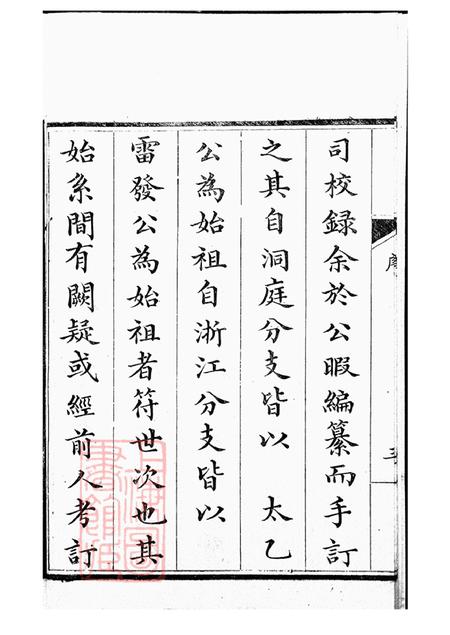 司校録余於公暇編纂而手訂
之其自洞庭分支皆以　太乙
公為始祖自浙江分支皆以
雷發公為始祖者符世次也其
始系間有闕疑或經前人考訂